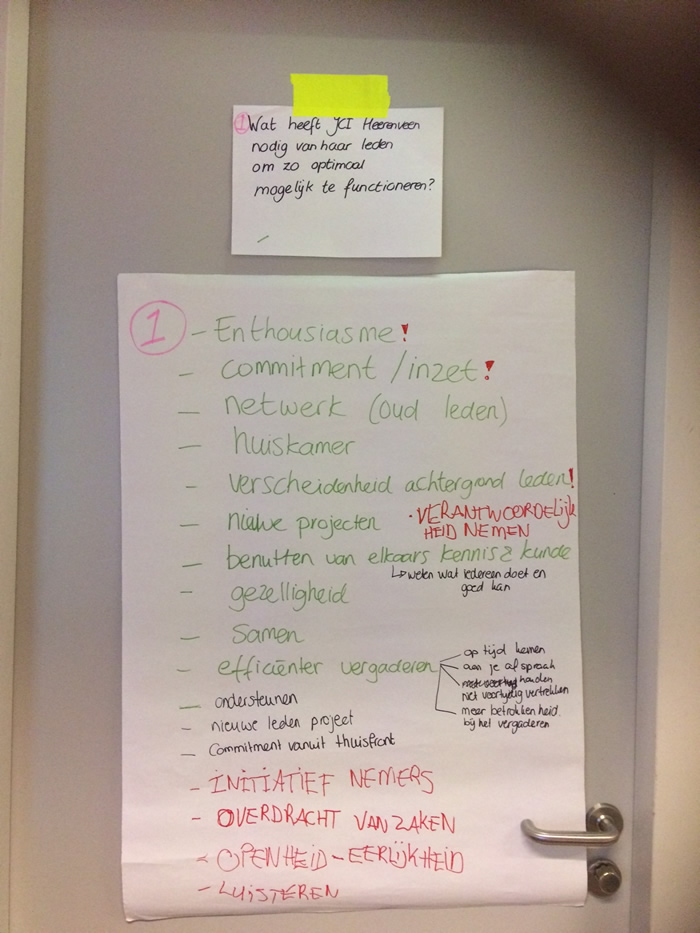 ① Wat heeft JCI Heerenveen
nodig van haar leden
om zo optimaal
mogelijk te functioneren?
① - Enthousiasme!
- commitment / inzet!
- netwerk (oud leden)
- huiskamer
- verscheidenheid achtergrond leden!
- nieuwe projecten
· VERANTWOORDELIJK
HEID NEMEN
- benutten van elkaars kennis & kunde
↳ weten wat iedereen doet en
goed kan
- gezelligheid
- Samen
- efficiënter vergaderen
op tijd komen
aan je afspraak
houden
niet voortijdig vertrekken
meer betrokkenheid
bij het vergaderen
- ondersteunen
- nieuwe leden project
- Commitment vanuit thuisfront
- INITIATIEF NEMERS
- OVERDRACHT VAN ZAKEN
- OPENHEID - EERLIJKHEID
- LUISTEREN